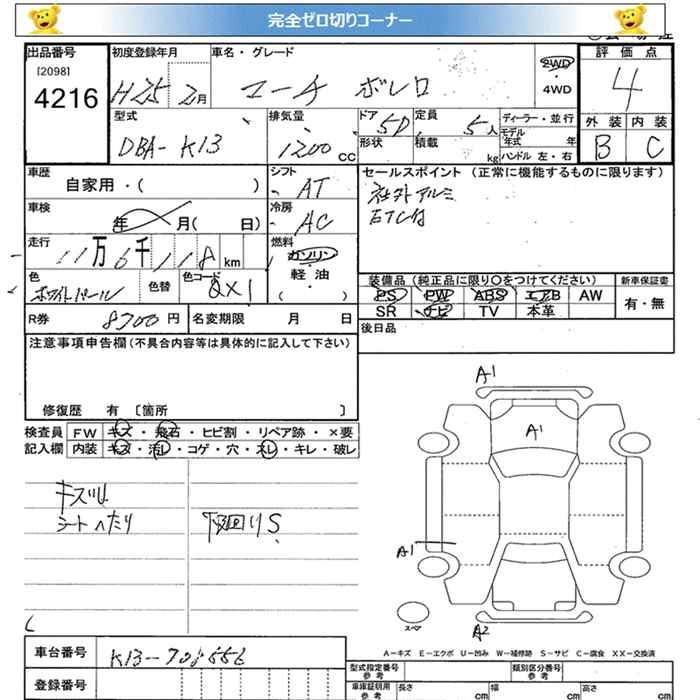 完全ゼロ切りコーナー
出品番号 初度登録年月 車名・グレード 評価点
[2098]
4216 H25 2月 マーチ ボレロ 2WD ・ 4WD 4
型式 排気量 ドア 定員 ディーラー・並行 外装 内装
DBA-K13 1200 CC 5D 5人 モデル年式 年 B C
形状 積載 kg ハンドル 左・右
車歴 シフト セールスポイント(正常に機能するものに限ります)
自家用・( ) AT 社外アルミ
車検 冷房 ETC付
年 月( 日) AC
走行 燃料
11万6千118km ガソリン
色 色替 色コード 軽・油 装備品(純正品に限り○をつけてください) 新車保証書
ホワイトパール QX1 ( ) PS PW ABS エアB AW 有・無
SR ナビ TV 本革
R券 8700円 名変期限 月 日 後日品
注意事項申告欄(不具合内容等は具体的に記入して下さい)
修復歴 有 [箇所 ]
検査員 FW キズ・飛石・ヒビ割・リペア跡・×要
記入欄 内装 キズ・汚レ・コゲ・穴・スレ・キレ・破レ
A1
A1
キズ
シートへたり 下回りS
A1
スペア
A2
A-キズ E-エクボ U-凹み W-補修跡 S-サビ C-腐食 XX-交換済
車台番号 K13-
型式指定番号 参考 類別区分番号 参考
登録番号 車庫証明用 参考 長さ cm 幅 cm 高さ cm